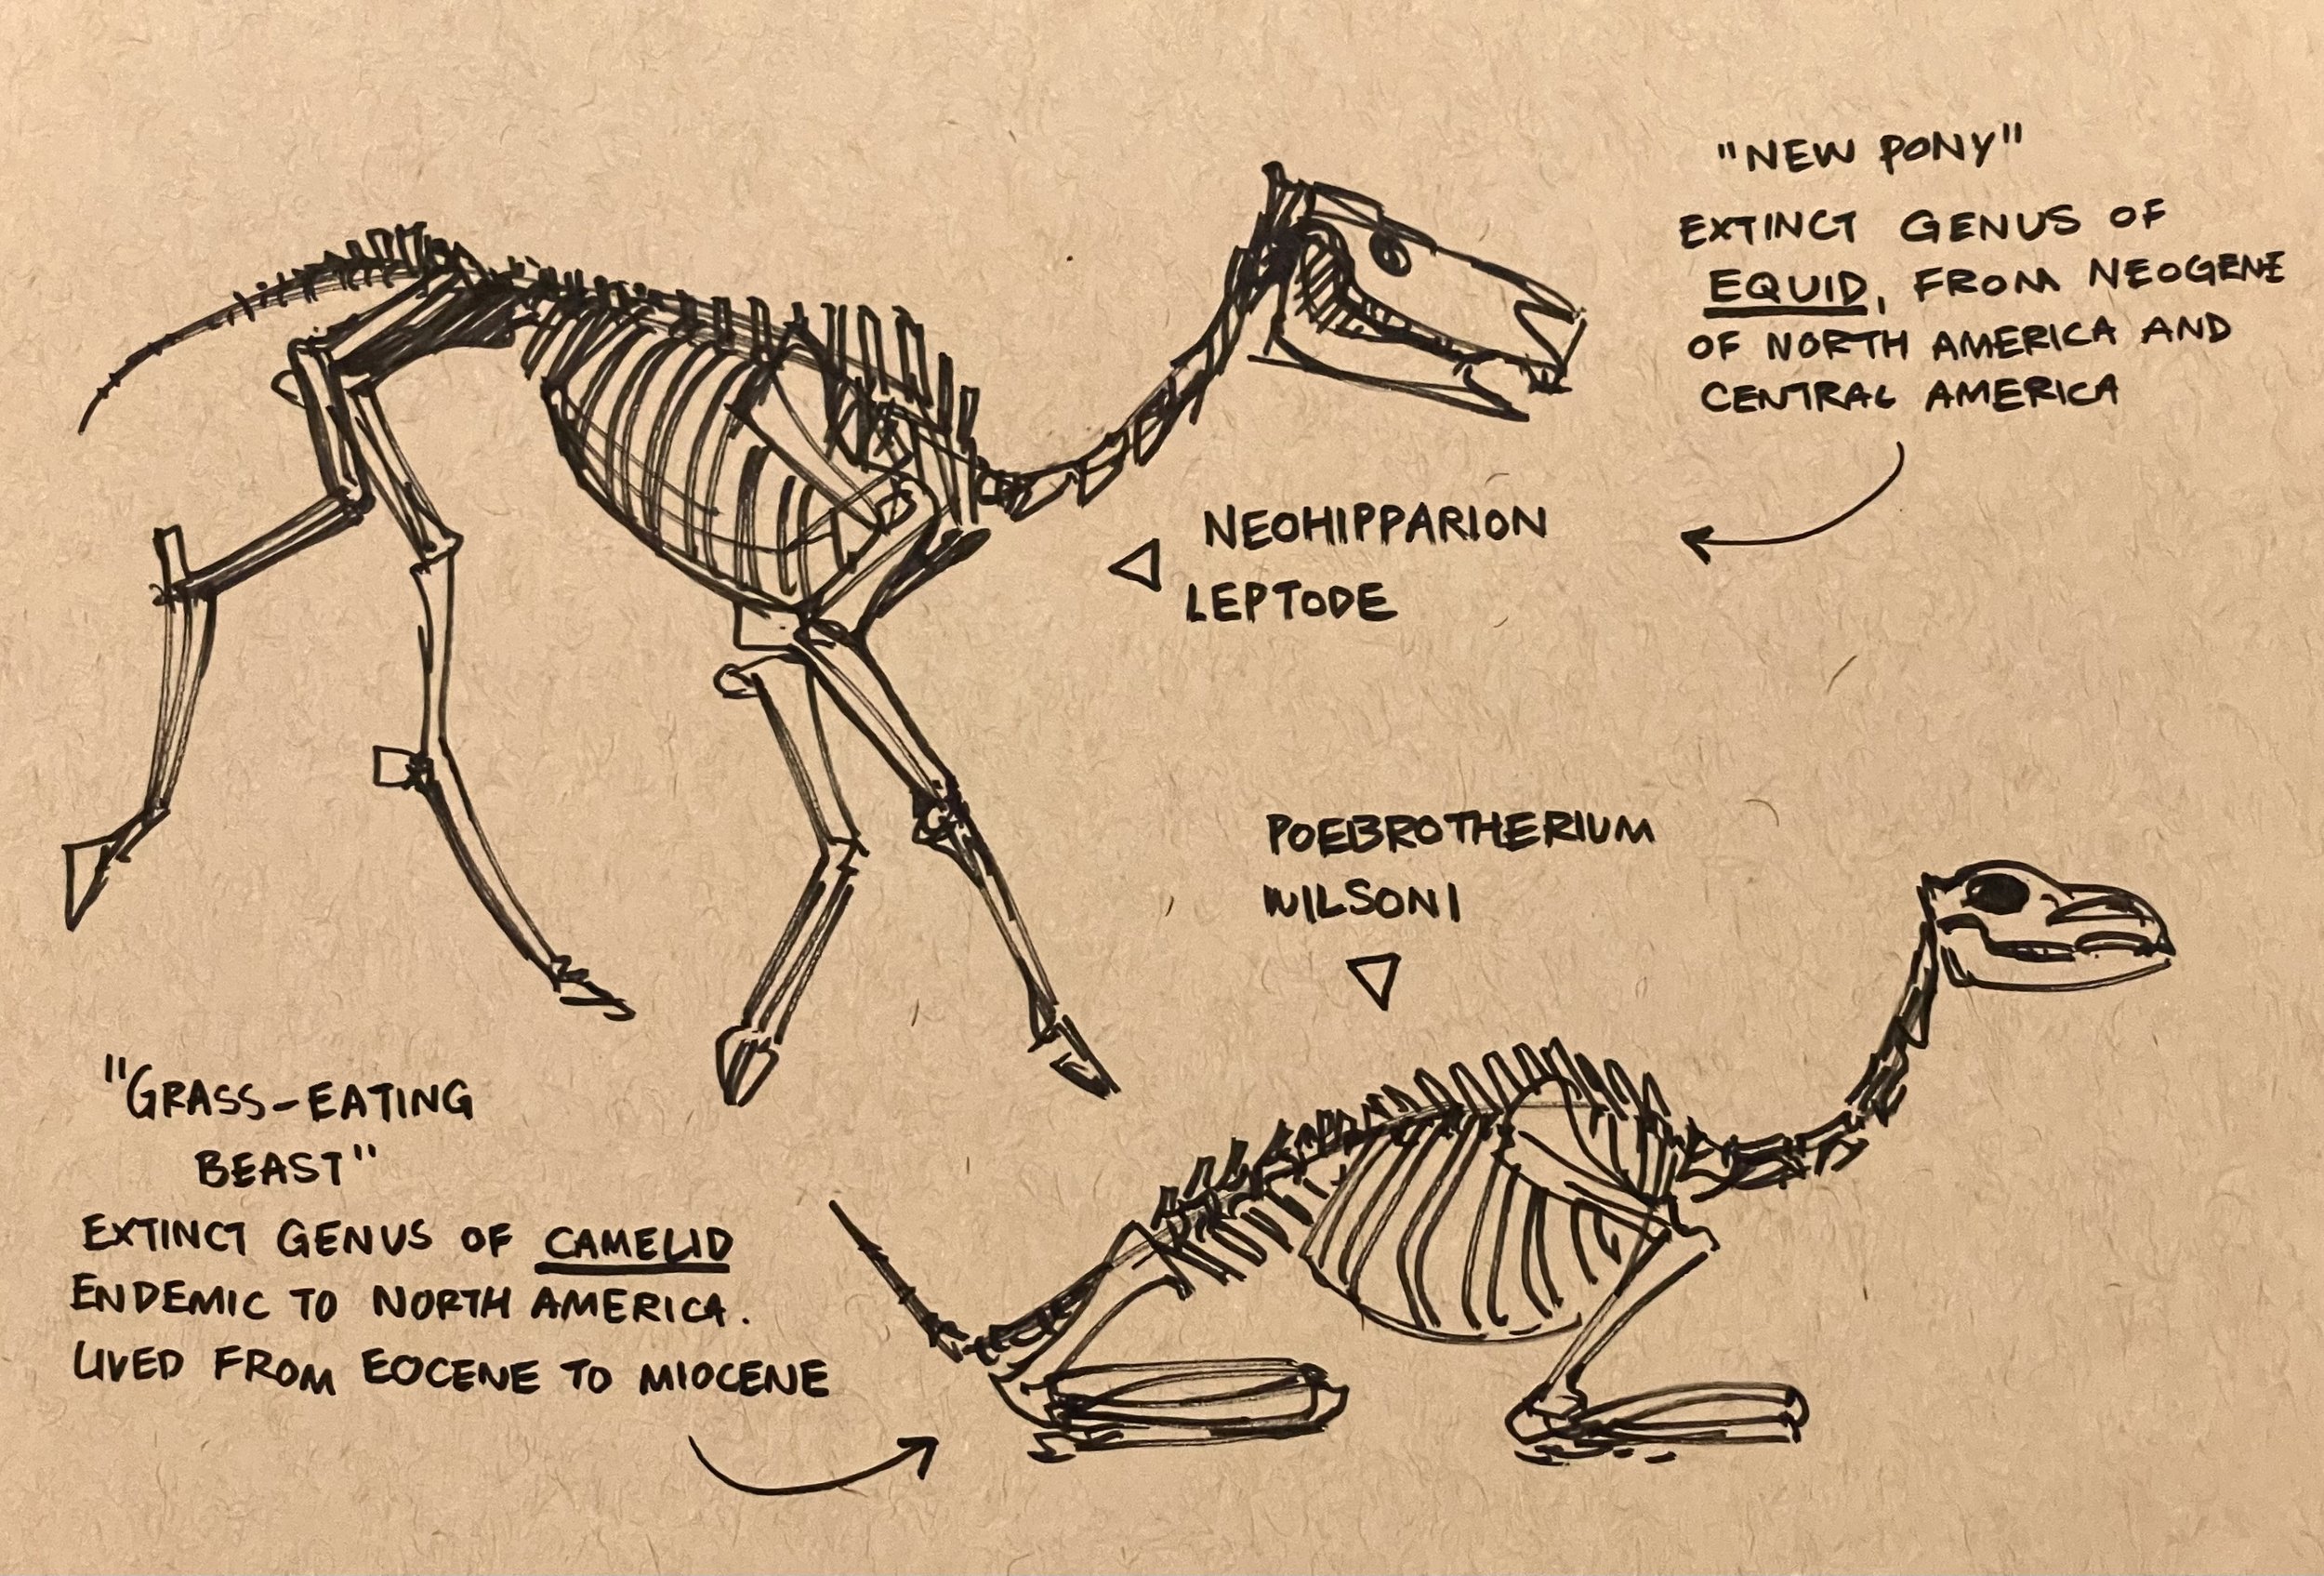 "NEW PONY"
EXTINCT GENUS OF
EQUID, FROM NEOGENE
OF NORTH AMERICA AND
CENTRAL AMERICA
NEOHIPPARION
LEPTODE
POEBROTHERIUM
WILSONI
"GRASS-EATING
BEAST"
EXTINCT GENUS OF CAMELID
ENDEMIC TO NORTH AMERICA.
LIVED FROM EOCENE TO MIOCENE